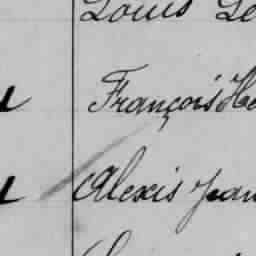 Louis Le
François He
Alexis Jean